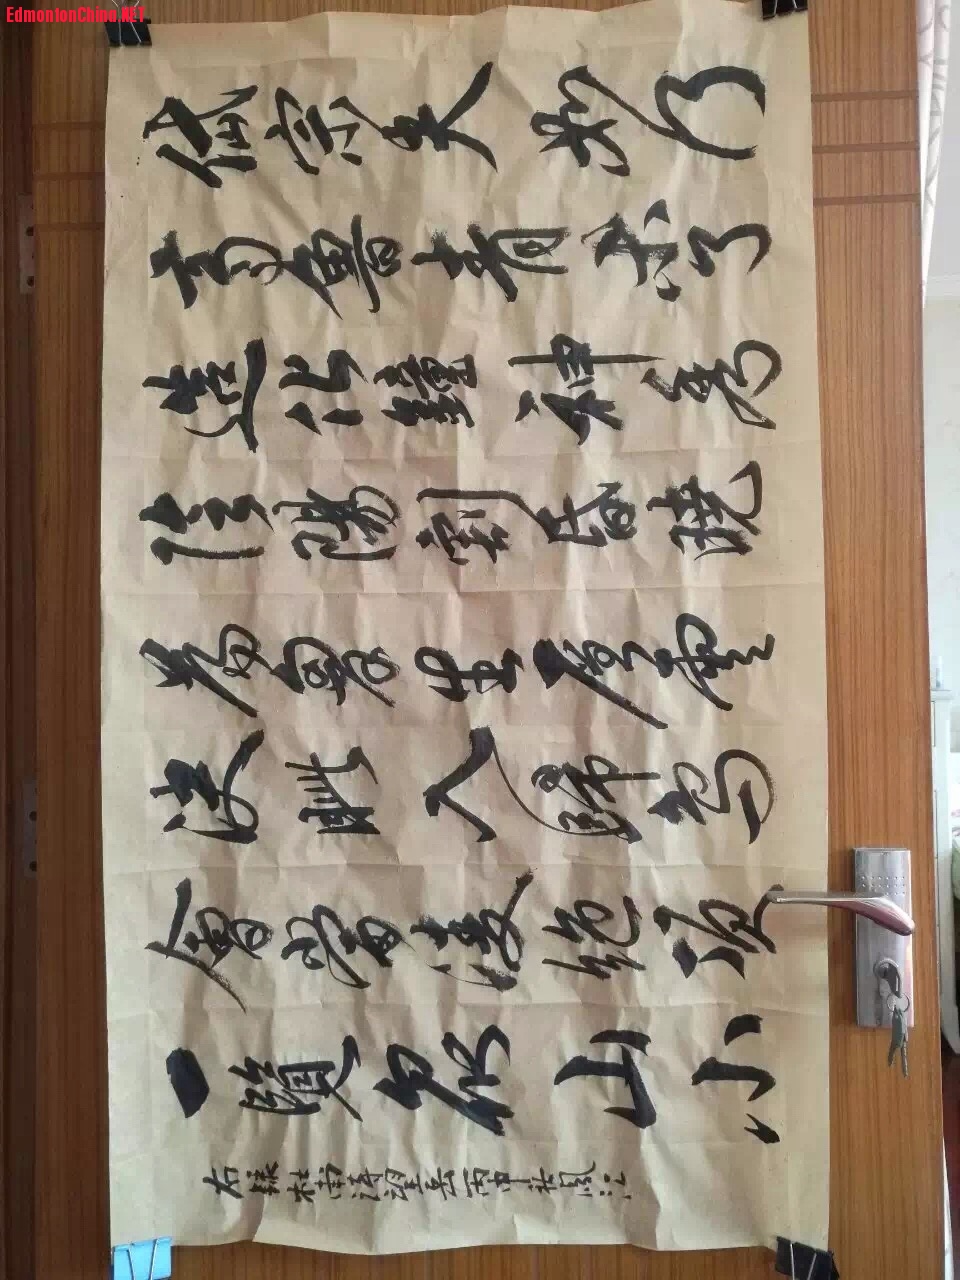 岱宗夫如何
齊魯青未了
造化鐘神秀
陰陽割昏曉
蕩胸生層雲
決眦入歸鳥
會當凌絕頂
一覽眾山小
右錄杜甫詩望岳丙申
EdmontonChina.NET